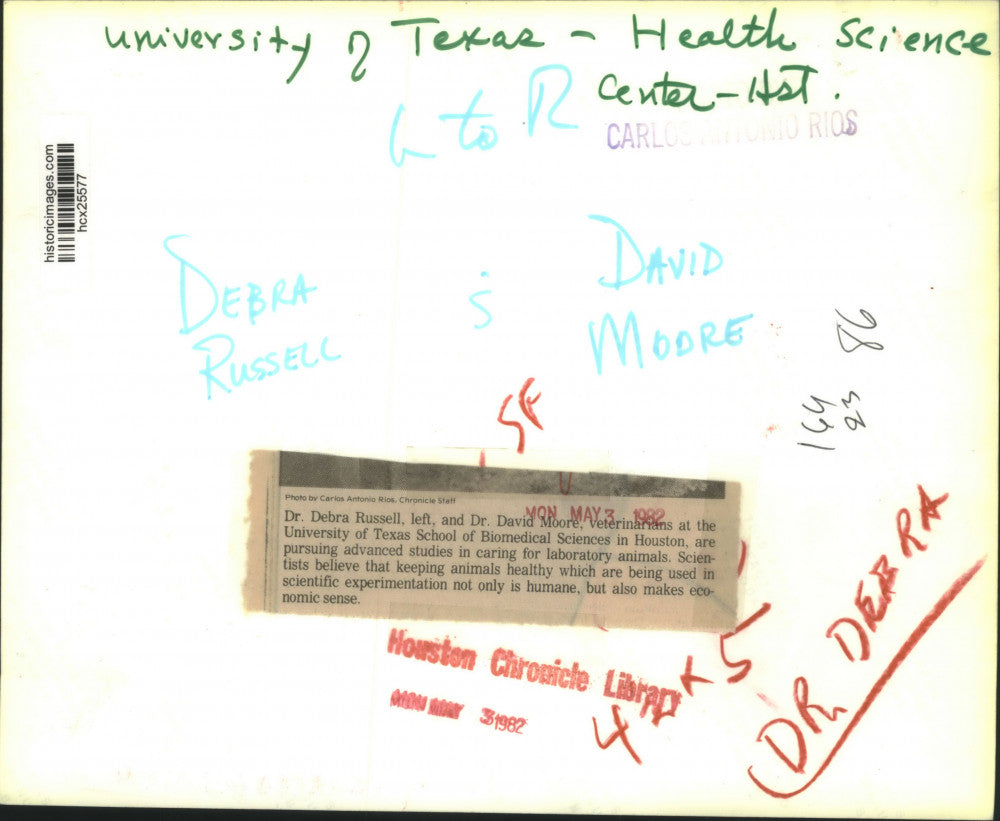 University of Texas - Health Science
Center - Hst.
L to R
CARLOS ANTONIO RIOS
historicimages.com
hcx25577
DEBRA
RUSSELL
DAVID
MOORE
86
164
23
5F
Photo by Carlos Antonio Rios, Chronicle Staff
MON MAY 3 1982
Dr. Debra Russell, left, and Dr. David Moore, veterinarians at the
University of Texas School of Biomedical Sciences in Houston, are
pursuing advanced studies in caring for laboratory animals. Scien-
tists believe that keeping animals healthy which are being used in
scientific experimentation not only is humane, but also makes eco-
nomic sense.
Houston Chronicle Library
MON MAY 3 1982
4 x 5
DR DEBRA